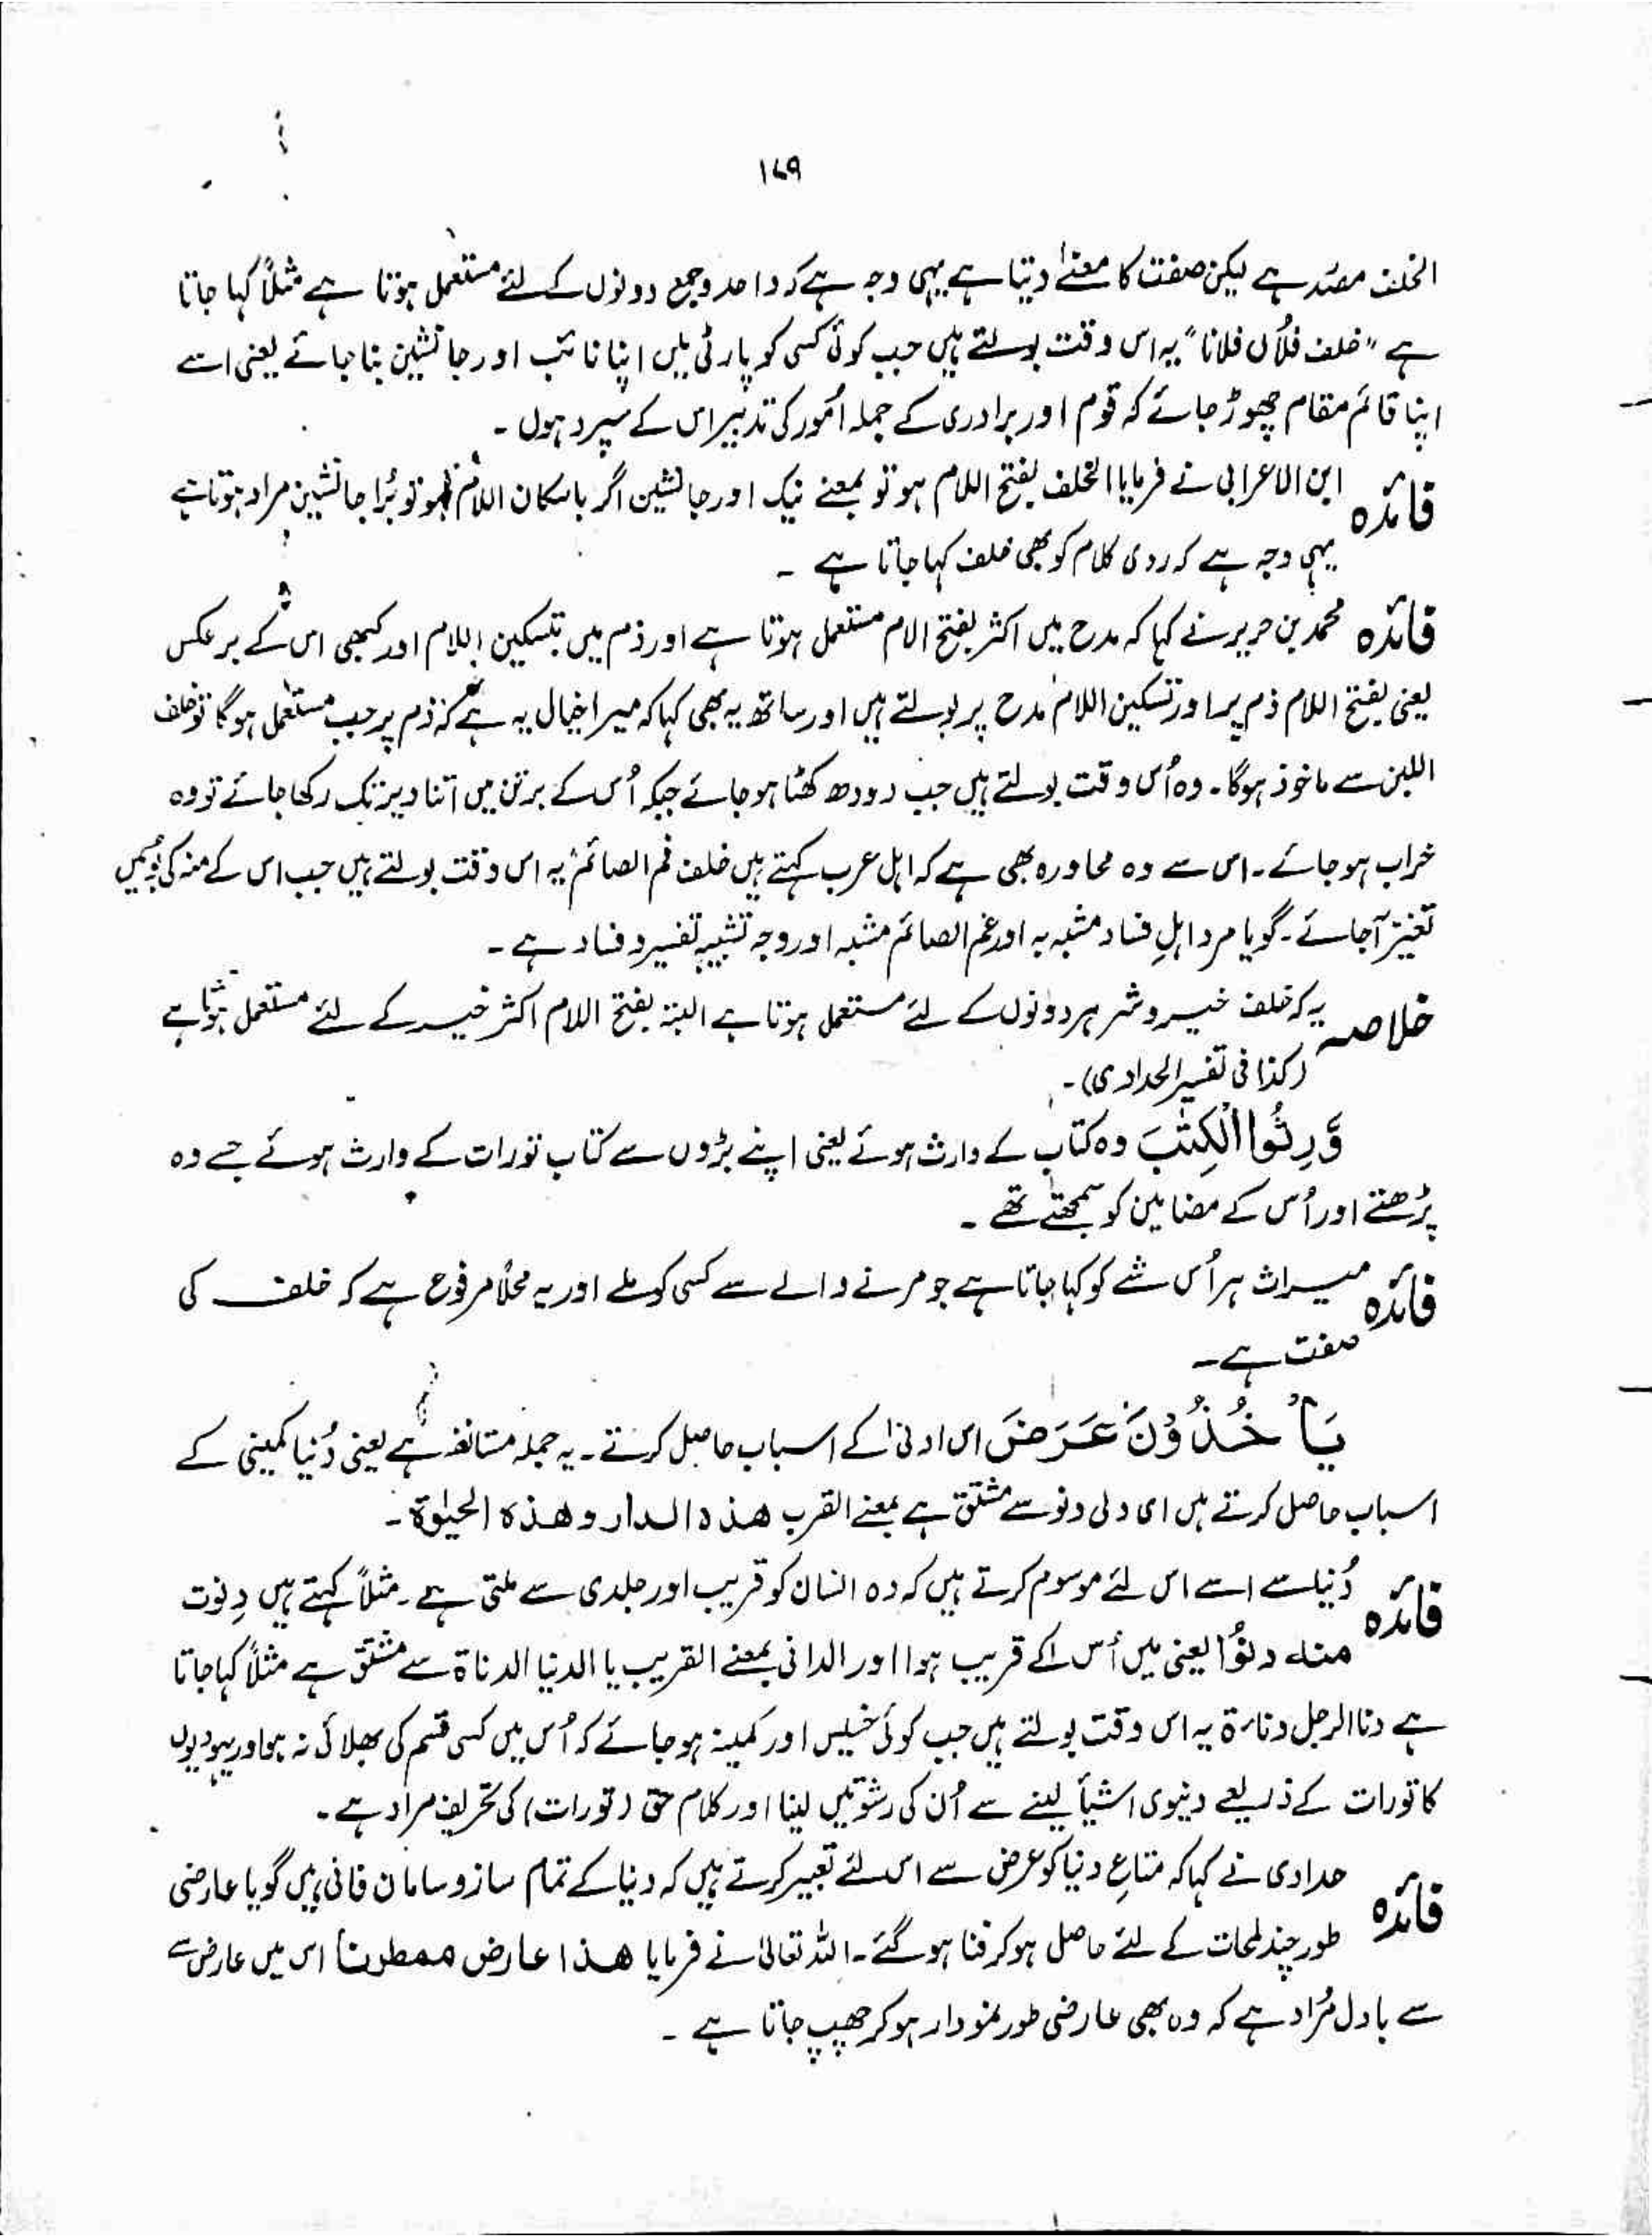 ۱۷۹
الخلف مصدر ہے لیکن صفت کا معنےٰ دیتا ہے یہی وجہ ہے کہ واحد و جمع دونوں کے لئے مستعمل ہوتا ہے مثلاً کہا جاتا
ہے "خلف فلاں فلانا" یہ اس وقت بولتے ہیں جب کوئی کسی کو پارٹی میں اپنا نائب اور جانشین بنا جائے یعنی اسے
اپنا قائم مقام چھوڑ جائے کہ قوم اور برادری کے جملہ اُمور کی تدبیر اس کے سپرد ہوں ۔
فائدہ ابن الاعرابی نے فرمایا الخلف بفتح اللام ہو تو بمعنے نیک اور جانشین اگر باسکان اللام ہو تو بُرا جانشین مراد ہوتا ہے
یہی وجہ ہے کہ ردی کلام کو بھی خلف کہا جاتا ہے ۔
فائدہ محمد بن حریر نے کہا کہ مدح میں اکثر بفتح الام مستعمل ہوتا ہے اور ذم میں بتسکین اللام اور کبھی اس کے برعکس
یعنی بفتح اللام ذم پر اور تسکین اللام مدح پر بولتے ہیں اور ساتھ یہ بھی کہا کہ میرا خیال یہ ہے کہ ذم پر جب مستعمل ہوگا تو خلف
اللبن سے ماخوذ ہوگا ۔ وہ اُس وقت بولتے ہیں جب دودھ کھٹا ہو جائے جبکہ اُس کے برتن میں اتنا دیر تک رکھا جائے تو وہ
خراب ہو جائے ۔ اس سے وہ محاورہ بھی ہے کہ اہل عرب کہتے ہیں خلف فم الصائم یہ اس وقت بولتے ہیں جب اس کے منہ کی بُو میں
تغیّر آجائے ۔ گویا مرد اہلِ فساد مشبہ بہ اور غم الصائم مشبہ اور وجہ تشبیہ تفسیر و فساد ہے ۔
خلاصہ یہ کہ خلف خیر و شر ہر دونوں کے لئے مستعمل ہوتا ہے البتہ بفتح اللام اکثر خیر کے لئے مستعمل ہوتا ہے
(کذا فی تفسیر الحدادی) ۔
وَّرِثُوا الْكِتٰبَ وہ کتاب کے وارث ہوئے یعنی اپنے بڑوں سے کتاب تورات کے وارث ہوئے جسے وہ
پڑھتے اور اُس کے مضامین کو سمجھتے تھے ۔
فائدہ میراث ہر اُس شے کو کہا جاتا ہے جو مرنے والے سے کسی کو ملے اور یہ محلاً مرفوع ہے کہ خلف کی
صفت ہے ۔
يَاْخُذُوْنَ عَرَضَ اس ادنیٰ کے اسباب حاصل کرتے ۔ یہ جملہ مستانفہ ہے یعنی دُنیا کمینی کے
اسباب حاصل کرتے ہیں ای دلی دنو سے مشتق ہے بمعنے القرب هذه الدار و هذه الحيٰوة ۔
فائدہ دُنیا سے اسے اس لئے موسوم کرتے ہیں کہ وہ انسان کو قریب اور جلدی سے ملتی ہے ۔ مثلاً کہتے ہیں دنوت
منه دنوًّا یعنی میں اُس کے قریب ہوا اور الدانی بمعنے القریب یا الدنیا الدناة سے مشتق ہے مثلاً کہا جاتا
ہے دنا الرجل دناءۃ یہ اس وقت بولتے ہیں جب کوئی خسیس اور کمینہ ہو جائے کہ اُس میں کسی قسم کی بھلائی نہ ہو اور یہودیوں
کا تورات کے ذریعے دنیوی اشیأ لینے سے اُن کی رشوتیں لینا اور کلام حق (تورات) کی تحریف مراد ہے ۔
فائدہ حدادی نے کہا کہ متاعِ دنیا کو عرض سے اس لئے تعبیر کرتے ہیں کہ دنیا کے تمام سازو سامان فانی ہیں گویا عارضی
طور چند لمحات کے لئے حاصل ہو کر فنا ہو گئے ۔ اللہ تعالیٰ نے فرمایا هذا عارض ممطرنا اس میں عارض سے
سے بادل مُراد ہے کہ وہ بھی عارضی طور نمودار ہو کر چھپ جاتا ہے ۔